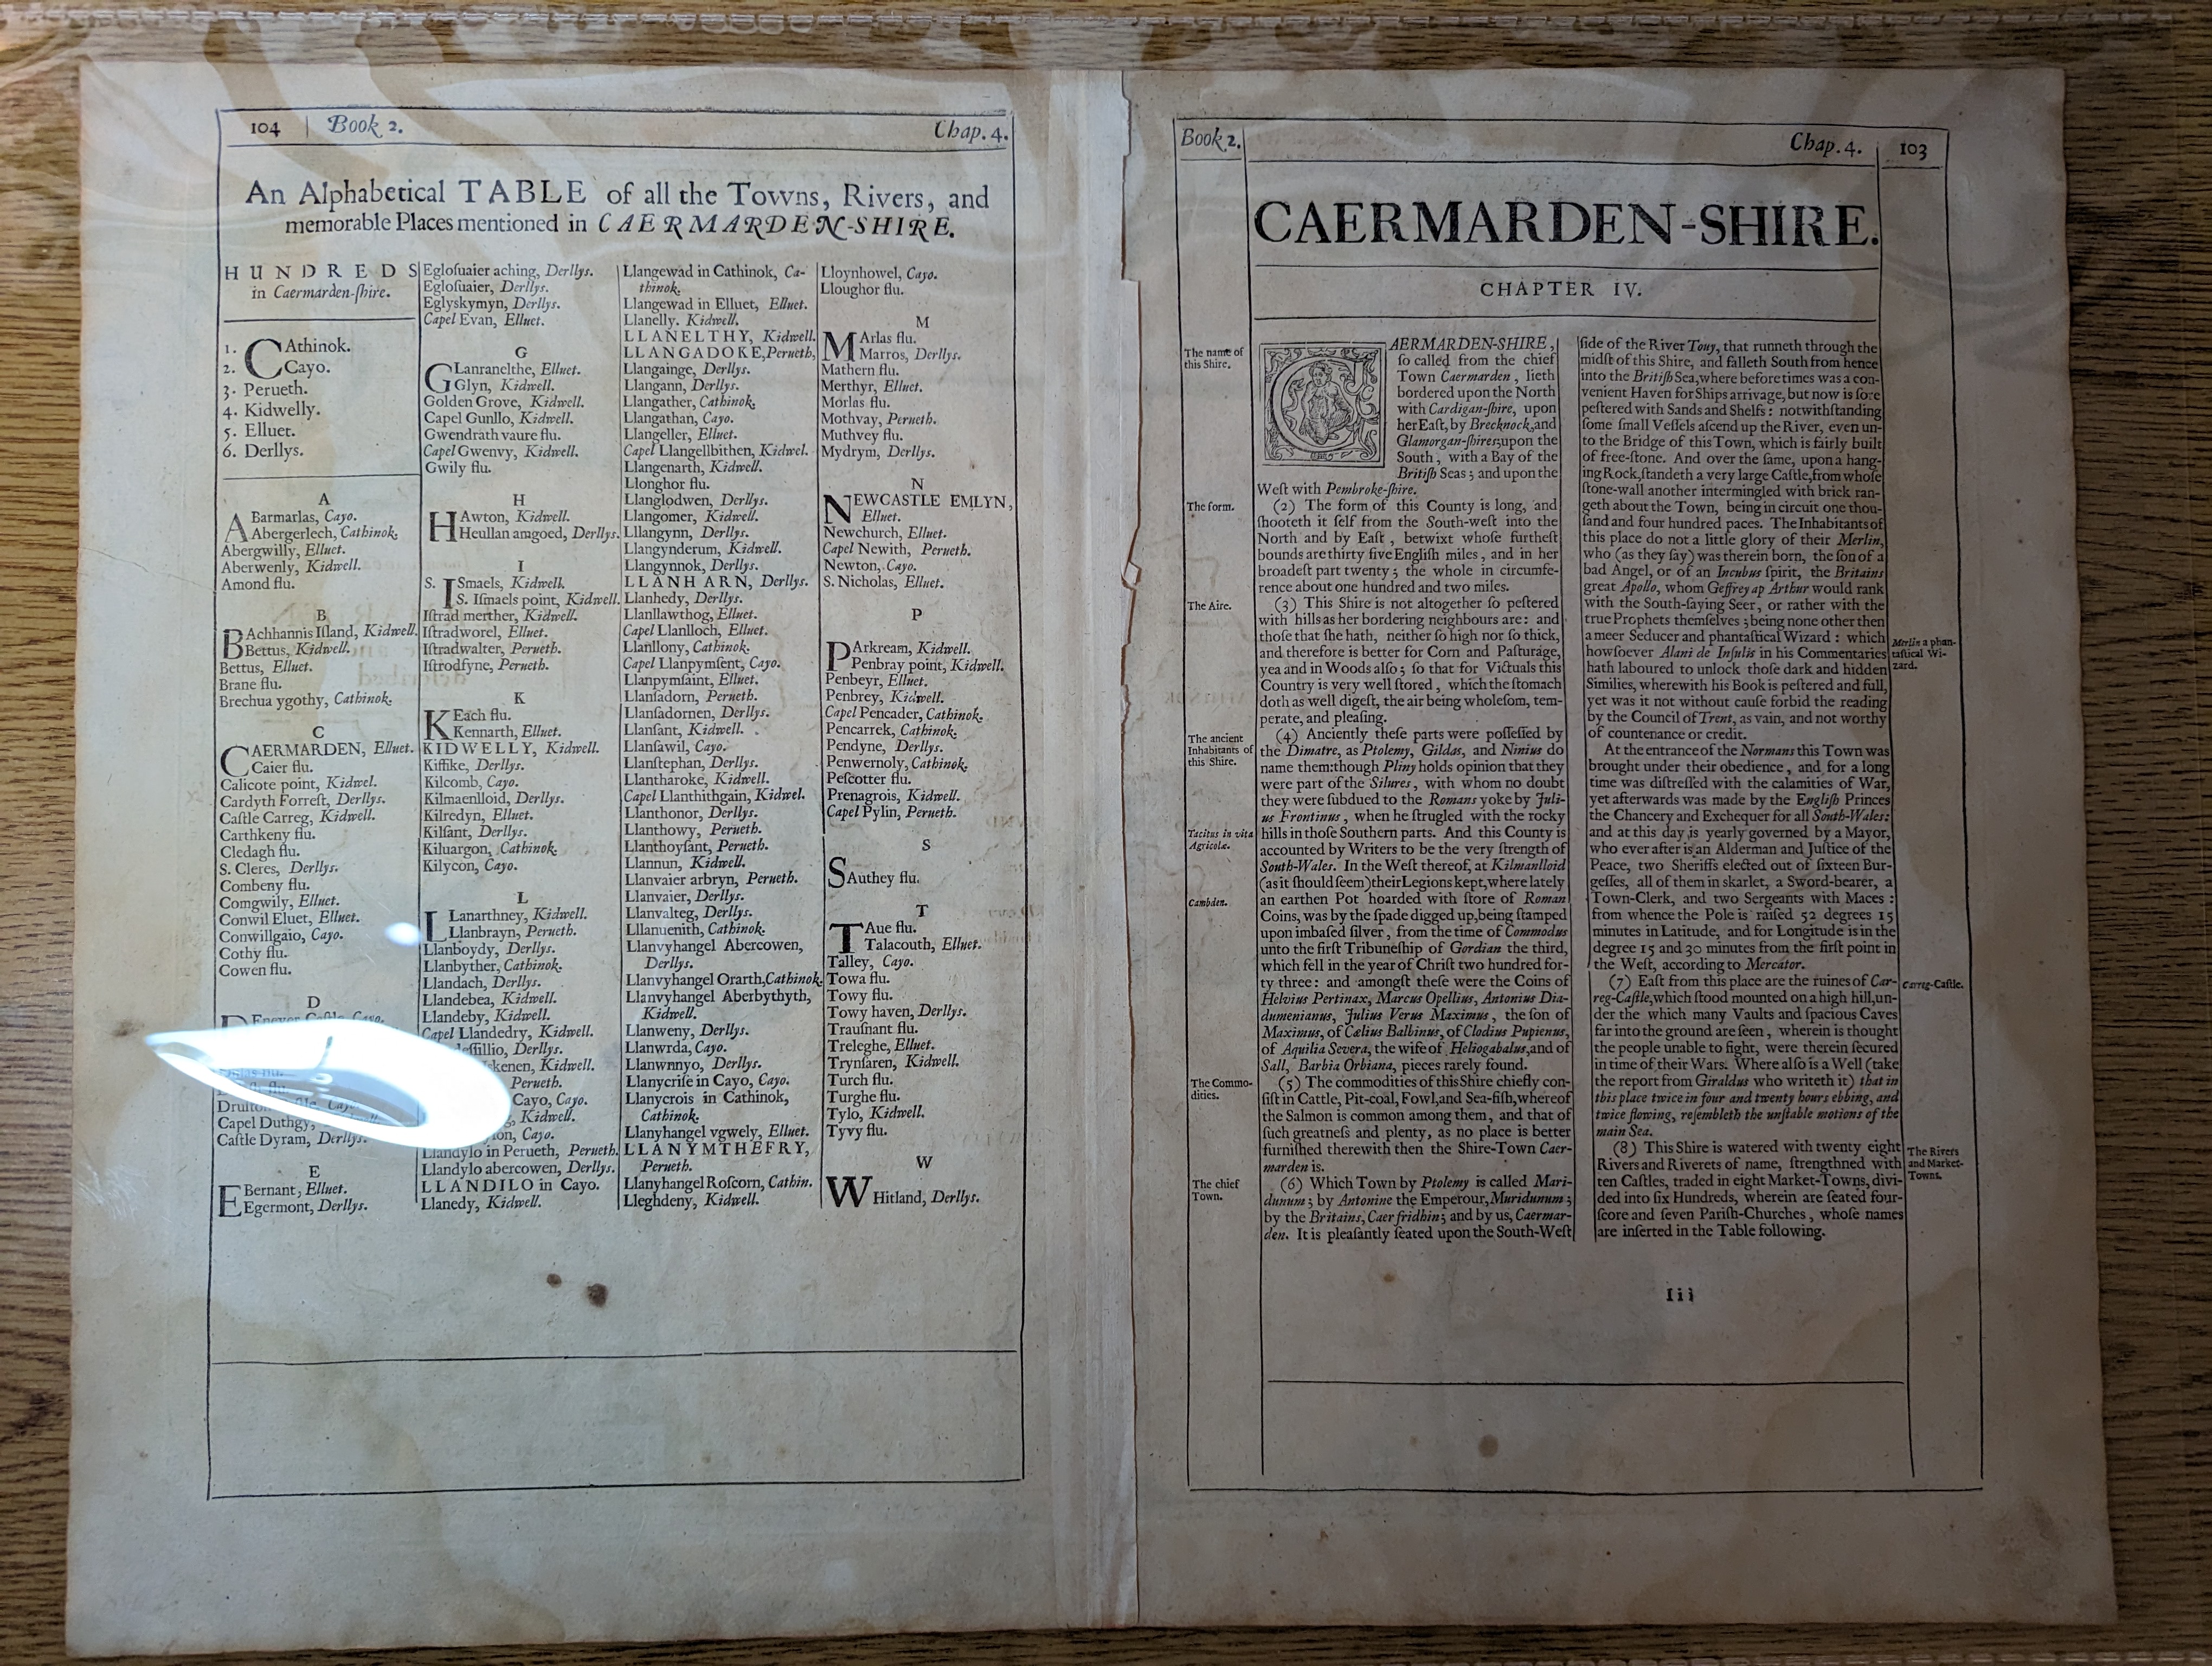 104 | Book 2. Chap. 4.
An Alphabetical TABLE of all the Towns, Rivers, and
memorable Places mentioned in CAERMARDEN-SHIRE.
HUNDREDS
in Caermarden-ſhire.
1. CAthinok.
2. Cayo.
3. Perueth.
4. Kidwelly.
5. Elluet.
6. Derllys.
A
ABarmarlas, Cayo.
Abergerlech, Cathinok.
Abergwilly, Elluet.
Aberwenly, Kidwell.
Amond flu.
B
BAchhannis Iſland, Kidwell.
Bettus, Kidwell.
Bettus, Elluet.
Brane flu.
Brechua ygothy, Cathinok.
C
CAERMARDEN, Elluet.
Caier flu.
Calicote point, Kidwel.
Cardyth Forreſt, Derllys.
Caſtle Carreg, Kidwell.
Carthkeny flu.
Cledagh flu.
S. Cleres, Derllys.
Combeny flu.
Comgwily, Elluet.
Conwil Eluet, Elluet.
Conwillgaio, Cayo.
Cothy flu.
Cowen flu.
D
Capel Duthgy,
Caſtle Dyram, Derllys.
E
EBernant, Elluet.
Egermont, Derllys.
Egloſuaier aching, Derllys.
Egloſuaier, Derllys.
Eglyskymyn, Derllys.
Capel Evan, Elluet.
G
GLanranelthe, Elluet.
Glyn, Kidwell.
Golden Grove, Kidwell.
Capel Gunllo, Kidwell.
Gwendrath vaure flu.
Capel Gwenvy, Kidwell.
Gwily flu.
H
HAwton, Kidwell.
Heullan amgoed, Derllys.
I
S. ISmaels, Kidwell.
S. Iſmaels point, Kidwell.
Iſtrad merther, Kidwell.
Iſtradworel, Elluet.
Iſtradwalter, Perueth.
Iſtrodfyne, Perueth.
K
KEach flu.
Kennarth, Elluet.
KIDWELLY, Kidwell.
Kiffike, Derllys.
Kilcomb, Cayo.
Kilmaenlloid, Derllys.
Kilredyn, Elluet.
Kilſant, Derllys.
Kiluargon, Cathinok.
Kilycon, Cayo.
L
LLanarthney, Kidwell.
Llanbrayn, Perueth.
Llanboydy, Derllys.
Llanbyther, Cathinok.
Llandach, Derllys.
Llandebea, Kidwell.
Llandeby, Kidwell.
Capel Llandedry, Kidwell.
Derllys.
Kidwell.
Perueth.
Cayo, Cayo.
Kidwell.
Cayo.
Llandylo in Perueth, Perueth.
Llandylo abercowen, Derllys.
LLANDILO in Cayo.
Llanedy, Kidwell.
Llangewad in Cathinok, Ca-
thinok.
Llangewad in Elluet, Elluet.
Llanelly. Kidwell.
LLANELTHY, Kidwell.
LLANGADOKE, Perueth,
Llangainge, Derllys.
Llangann, Derllys.
Llangather, Cathinok.
Llangathan, Cayo.
Llangeller, Elluet.
Capel Llangellbithen, Kidwel.
Llangenarth, Kidwell.
Llonghor flu.
Llanglodwen, Derllys.
Llangomer, Kidwell.
Lllangynn, Derllys.
Llangynderum, Kidwell.
Llangynnok, Derllys.
LLANHARN, Derllys.
Llanhedy, Derllys.
Llanllawthog, Elluet.
Capel Llanlloch, Elluet.
Llanllony, Cathinok.
Capel Llanpymſent, Cayo.
Llanpymſaint, Elluet.
Llanſadorn, Perueth.
Llanſadornen, Derllys.
Llanſant, Kidwell.
Llanſawil, Cayo.
Llanſtephan, Derllys.
Llantharoke, Kidwell.
Capel Llanthithgain, Kidwel.
Llanthonor, Derllys.
Llanthowy, Perueth.
Llanthoyſant, Perueth.
Llannun, Kidwell.
Llanvaier arbryn, Perueth.
Llanvaier, Derllys.
Llanvalteg, Derllys.
Lllanuenith, Cathinok.
Llanvyhangel Abercowen,
Derllys.
Llanvyhangel Orarth, Cathinok.
Llanvyhangel Aberbythyth,
Kidwell.
Llanweny, Derllys.
Llanwrda, Cayo.
Llanwnnyo, Derllys.
Llanycriſe in Cayo, Cayo.
Llanycrois in Cathinok,
Cathinok.
Llanyhangel vgwely, Elluet.
LLANYMTHEFRY,
Perueth.
Llanyhangel Roſcorn, Cathin.
Lleghdeny, Kidwell.
Lloynhowel, Cayo.
Lloughor flu.
M
MArlas flu.
Marros, Derllys.
Mathern flu.
Merthyr, Elluet.
Morlas flu.
Mothvay, Perueth.
Muthvey flu.
Mydrym, Derllys.
N
NEWCASTLE EMLYN,
Elluet.
Newchurch, Elluet.
Capel Newith, Perueth.
Newton, Cayo.
S. Nicholas, Elluet.
P
PArkream, Kidwell.
Penbray point, Kidwell.
Penbeyr, Elluet.
Penbrey, Kidwell.
Capel Pencader, Cathinok.
Pencarrek, Cathinok.
Pendyne, Derllys.
Penwernoly, Cathinok.
Peſcotter flu.
Prenagrois, Kidwell.
Capel Pylin, Perueth.
S
SAuthey flu.
T
TAue flu.
Talacouth, Elluet.
Talley, Cayo.
Towa flu.
Towy flu.
Towy haven, Derllys.
Trauſnant flu.
Treleghe, Elluet.
Trynſaren, Kidwell.
Turch flu.
Turghe flu.
Tylo, Kidwell.
Tyvy flu.
W
WHitland, Derllys.
Book 2. Chap. 4. 103
CAERMARDEN-SHIRE.
CHAPTER IV.
The name of
this Shire.
CAERMARDEN-SHIRE,
ſo called from the chief
Town Caermarden, lieth
bordered upon the North
with Cardigan-ſhire, upon
her Eaſt, by Brecknock, and
Glamorgan-ſhires; upon the
South, with a Bay of the
Britiſh Seas; and upon the
Weſt with Pembroke-ſhire.
The form.
(2) The form of this County is long, and
ſhooteth it ſelf from the South-weſt into the
North and by Eaſt, betwixt whoſe furtheſt
bounds are thirty five Engliſh miles, and in her
broadeſt part twenty; the whole in circumfe-
rence about one hundred and two miles.
The Aire.
(3) This Shire is not altogether ſo peſtered
with hills as her bordering neighbours are: and
thoſe that ſhe hath, neither ſo high nor ſo thick,
and therefore is better for Corn and Paſturage,
yea and in Woods alſo; ſo that for Victuals this
Country is very well ſtored, which the ſtomach
doth as well digeſt, the air being wholeſom, tem-
perate, and pleaſing.
The ancient
Inhabitants of
this Shire.
(4) Anciently theſe parts were poſſeſſed by
the Dimatre, as Ptolemy, Gildas, and Ninius do
name them: though Pliny holds opinion that they
were part of the Silures, with whom no doubt
they were ſubdued to the Romans yoke by Juli-
us Frontinus, when he ſtrugled with the rocky
Tacitus in vita
Agricolæ.
hills in thoſe Southern parts. And this County is
accounted by Writers to be the very ſtrength of
South-Wales. In the Weſt thereof, at Kilmanlloid
(as it ſhould ſeem) their Legions kept, where lately
Cambden.
an earthen Pot hoarded with ſtore of Roman
Coins, was by the ſpade digged up, being ſtamped
upon imbaſed ſilver, from the time of Commodus
unto the firſt Tribuneſhip of Gordian the third,
which fell in the year of Chriſt two hundred for-
ty three: and amongſt theſe were the Coins of
Helvius Pertinax, Marcus Opellius, Antonius Dia-
dumenianus, Julius Verus Maximus, the ſon of
Maximus, of Cælius Balbinus, of Clodius Pupienus,
of Aquilia Severa, the wife of Heliogabalus, and of
Sall, Barbia Orbiana, pieces rarely found.
The Commo-
dities.
(5) The commodities of this Shire chiefly con-
ſiſt in Cattle, Pit-coal, Fowl, and Sea-fiſh, whereof
the Salmon is common among them, and that of
ſuch greatneſs and plenty, as no place is better
furniſhed therewith then the Shire-Town Caer-
marden is.
The chief
Town.
(6) Which Town by Ptolemy is called Mari-
dunum; by Antonine the Emperour, Muridunum;
by the Britains, Caer fridhin; and by us, Caermar-
den. It is pleaſantly ſeated upon the South-Weſt
ſide of the River Touy, that runneth through the
midſt of this Shire, and falleth South from hence
into the Britiſh Sea, where before times was a con-
venient Haven for Ships arrivage, but now is ſore
peſtered with Sands and Shelfs: notwithſtanding
ſome ſmall Veſſels aſcend up the River, even un-
to the Bridge of this Town, which is fairly built
of free-ſtone. And over the ſame, upon a hang-
ing Rock, ſtandeth a very large Caſtle, from whoſe
ſtone-wall another intermingled with brick ran-
geth about the Town, being in circuit one thou-
ſand and four hundred paces. The Inhabitants of
this place do not a little glory of their Merlin,
who (as they ſay) was therein born, the ſon of a
bad Angel, or of an Incubus ſpirit, the Britains
great Apollo, whom Geffrey ap Arthur would rank
with the South-ſaying Seer, or rather with the
true Prophets themſelves; being none other then
a meer Seducer and phantaſtical Wizard: which
Merlin a phan-
taſtical Wi-
zard.
howſoever Alani de Inſulis in his Commentaries
hath laboured to unlock thoſe dark and hidden
Similies, wherewith his Book is peſtered and full,
yet was it not without cauſe forbid the reading
by the Council of Trent, as vain, and not worthy
of countenance or credit.
At the entrance of the Normans this Town was
brought under their obedience, and for a long
time was diſtreſſed with the calamities of War,
yet afterwards was made by the Engliſh Princes
the Chancery and Exchequer for all South-Wales:
and at this day is yearly governed by a Mayor,
who ever after is an Alderman and Juſtice of the
Peace, two Sheriffs elected out of ſixteen Bur-
geſſes, all of them in skarlet, a Sword-bearer, a
Town-Clerk, and two Sergeants with Maces:
from whence the Pole is raiſed 52 degrees 15
minutes in Latitude, and for Longitude is in the
degree 15 and 30 minutes from the firſt point in
the Weſt, according to Mercator.
Carreg-Caſtle.
(7) Eaſt from this place are the ruines of Car-
reg-Caſtle, which ſtood mounted on a high hill, un-
der the which many Vaults and ſpacious Caves
far into the ground are ſeen, wherein is thought
the people unable to fight, were therein ſecured
in time of their Wars. Where alſo is a Well (take
the report from Giraldus who writeth it) that in
this place twice in four and twenty hours ebbing, and
twice flowing, reſembleth the unſtable motions of the
main Sea.
The Rivers
and Market-
Towns.
(8) This Shire is watered with twenty eight
Rivers and Riverets of name, ſtrengthned with
ten Caſtles, traded in eight Market-Towns, divi-
ded into ſix Hundreds, wherein are ſeated four-
ſcore and ſeven Pariſh-Churches, whoſe names
are inſerted in the Table following.
Iii